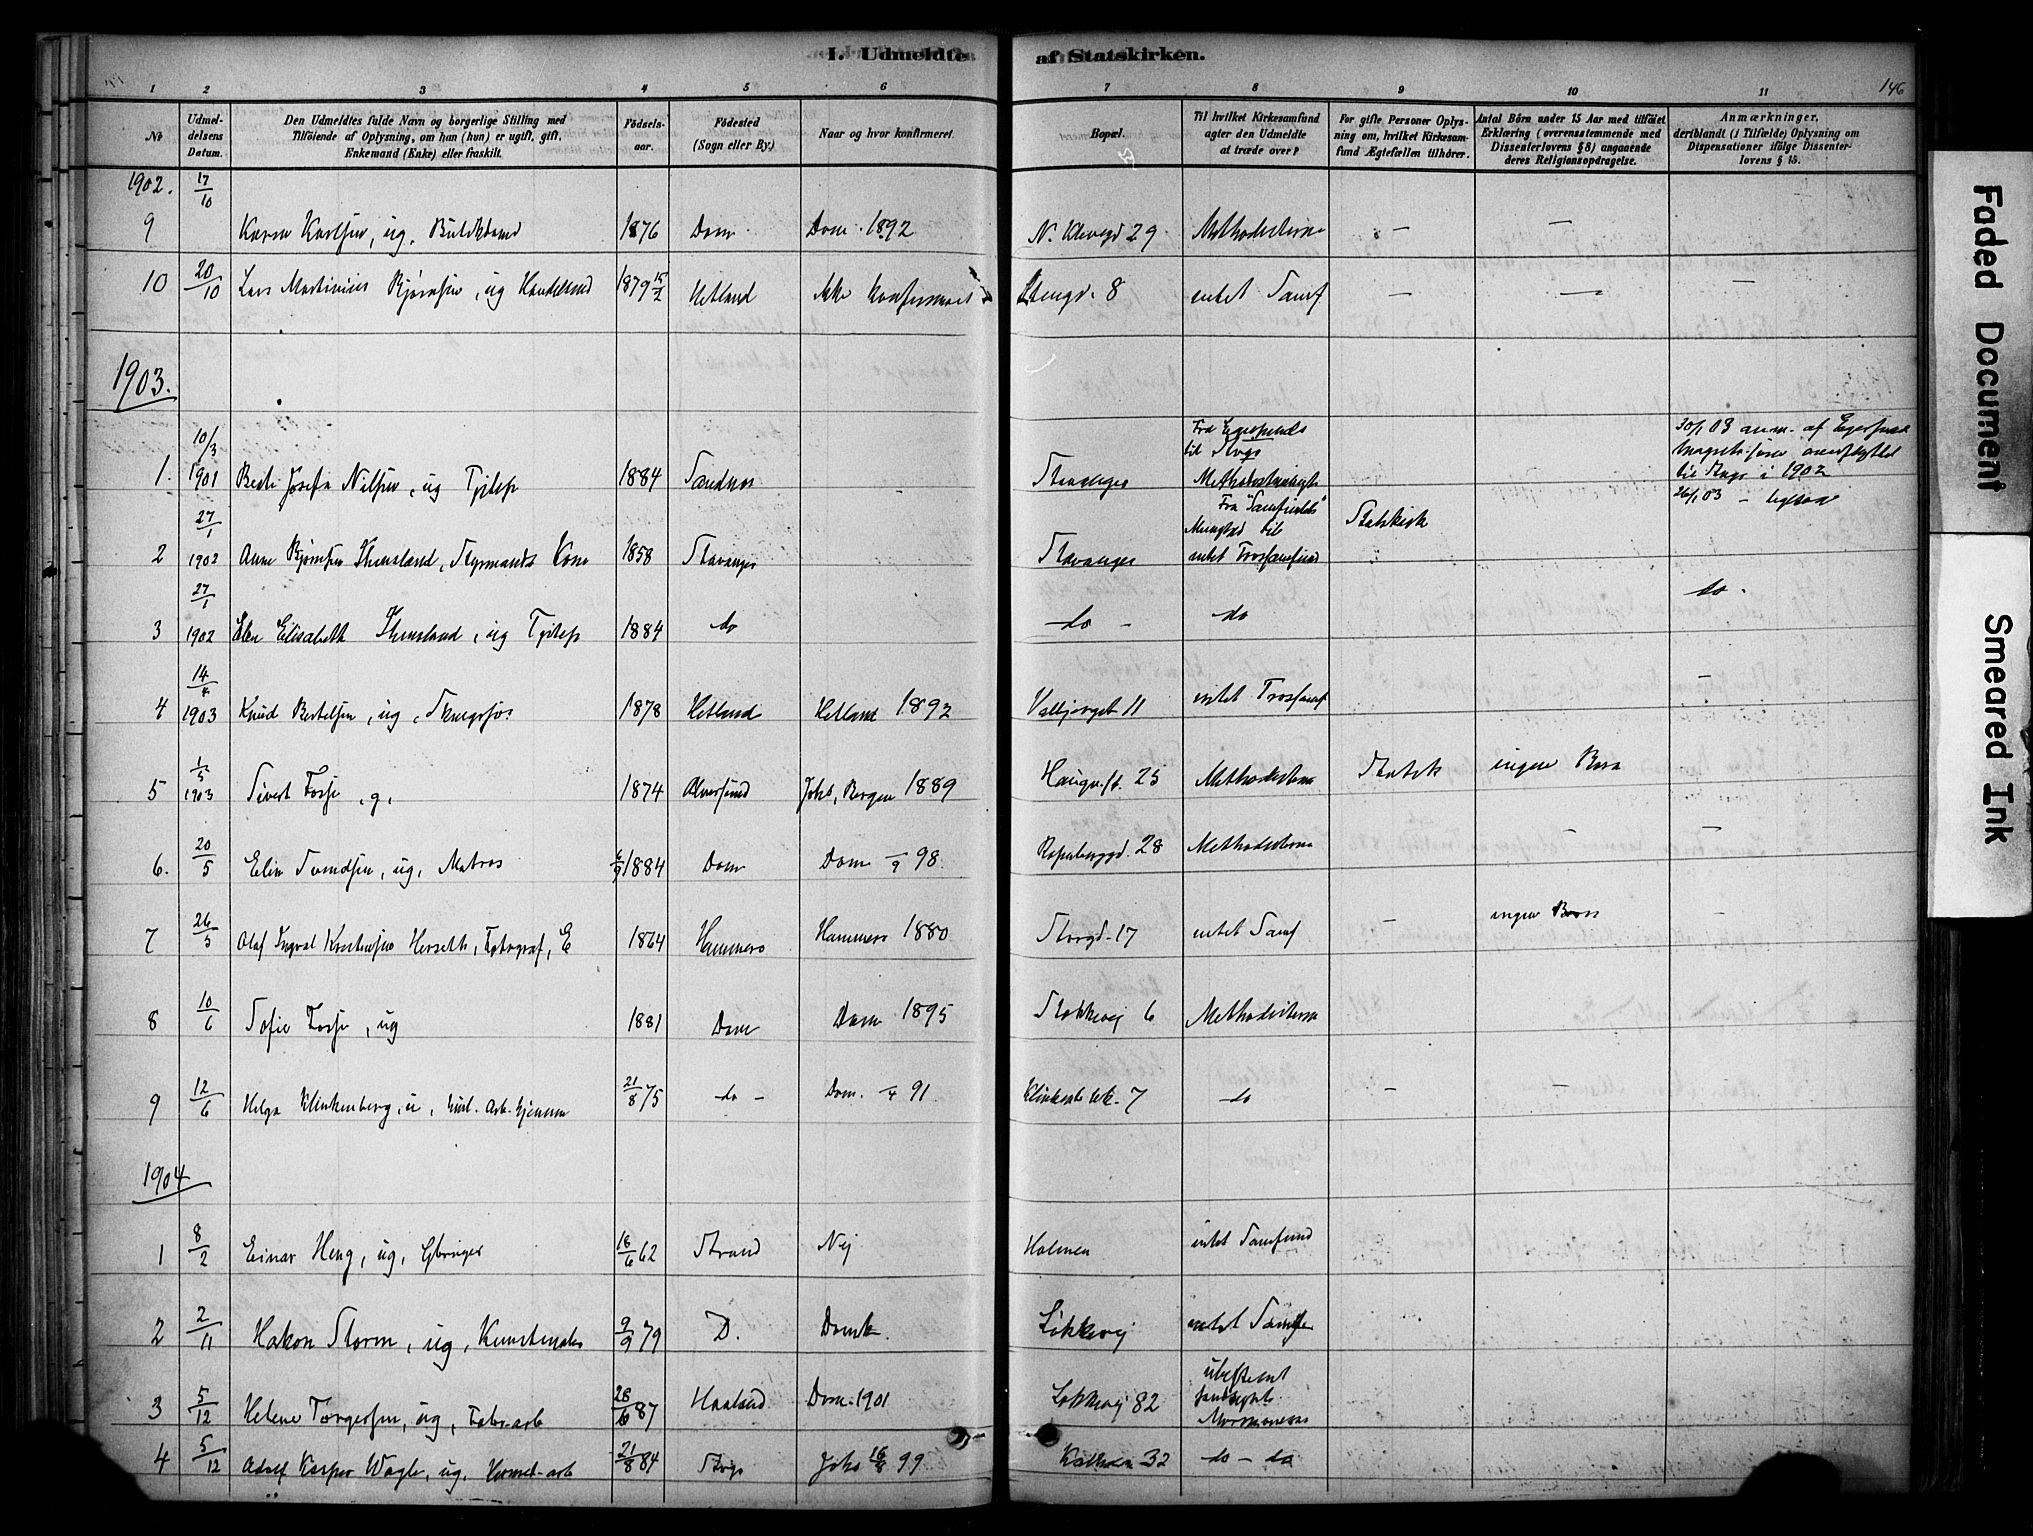 I. Udmeldte af Statskirken.
146
1 2 3 4 5 6 7 8 9 10 11
No
Udmeldelsens Datum.
Den Udmeldtes fulde Navn og borgerlige Stilling med
Tilföiende af Oplysning, om han (hun) er ugift, gift,
Enkemand (Enke) eller fraskilt.
Födselsaar.
Födested
(Sogn eller By.)
Naar og hvor konfirmeret.
Bopæl.
Til hvilket Kirkesamfund
agter den Udmeldte
at træde over?
For gifte Personer Oplysning om, hvilket Kirkesamfund Ægtefællen tilhörer.
Antal Börn under 15 Aar med tilföiet
Erklæring (overensstemmende med
Dissenterlovens § 8) angaaende
deres Religionsopdragelse.
Anmærkninger,
deriblandt (i Tilfælde) Oplysning om
Dispensationer ifölge Dissenterlovens § 15.
1902. 17/10
9 Karen Karlsen, ug. 1876 Dom Dom 1892 29 Methodisterne — —
10 20/10 Lars Martinius Bjørnsen, ug 1879 15/2 Hetland Ikke konfirmeret 8 intet Samf — — —
1903.
1. 10/3 1901 Josefa Nilsen, ug Tjttep 1884 Sandnes Stavanger Fra Egersunds til Stvgs 30/1 03 anm. af Egersunds
til Stvgr i 1902
2 27/1 1902 Anne Bjørnsen Styrmands Kone 1858 Stavanger Stavanger Fra "Samfundets" Menighed til intet Trossamfund Statskirk 26/1 03 —
3 27/1 1902 Elisabeth ug 1884 do do — do do -
4 14/4 1903 Knud Bertelsen, ug, 1878 Hetland Hetland 1892 Valbjerget 11 intet Trossamf —
5 1/5 1903 Sivert Fosse, g, 1874 Alversund Johs, Bergen 1889 25 Methodisterne Statsk ingen Børn
6. 20/5 Elin Svendsen, ug, Matros 6/9 1884 Dom Dom 98 28 Methodisterne — —
7 26/5 Olaf Ingval Herseth, Fotograf, E 1864 Hammerø Hammerø 1880 Storgd. 17 intet Samf — ingen Børn —
8 10/6 Sofie Fosse, ug 1881 Dom Dom 1895 Stokkavej 6 Methodisterne
9 12/6 Helga Klinkenberg, u, 21/8 75 do — Dom. 91 7 do — —
1904
1 8/2 Einar Heng, ug, 18/6 62 Strand Nej Holmen intet Samfund
2 2/11 Hakon Storm, ug, Kunstmaler 9/9 79 D. Domk. Løkkevej intet Samfun
3 5/12 Helene Torgersen, ug, Fabr-arb 28/6 87 Haaland Dom. 1901 Løkkevej 82 ubestemt sandsynl. Mormonerne
4 5/12 Adolf Kasper Wagle, ug. Hermet-arb 21/8 84 Stvgr Johs 99 32 do — do
Faded Document
Smeared Ink